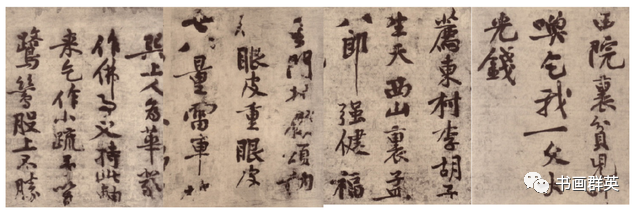 西院裏貧鬼
喚乞我一文大
光錢
薦東村李胡子
生天西山裏孟
八郎强健福
門
眼皮重眼皮
八量雷車
巽上人為華嚴
作佛事又持此軸
來乞作小疏不啻
鷺鷥股上不勝
书画群英